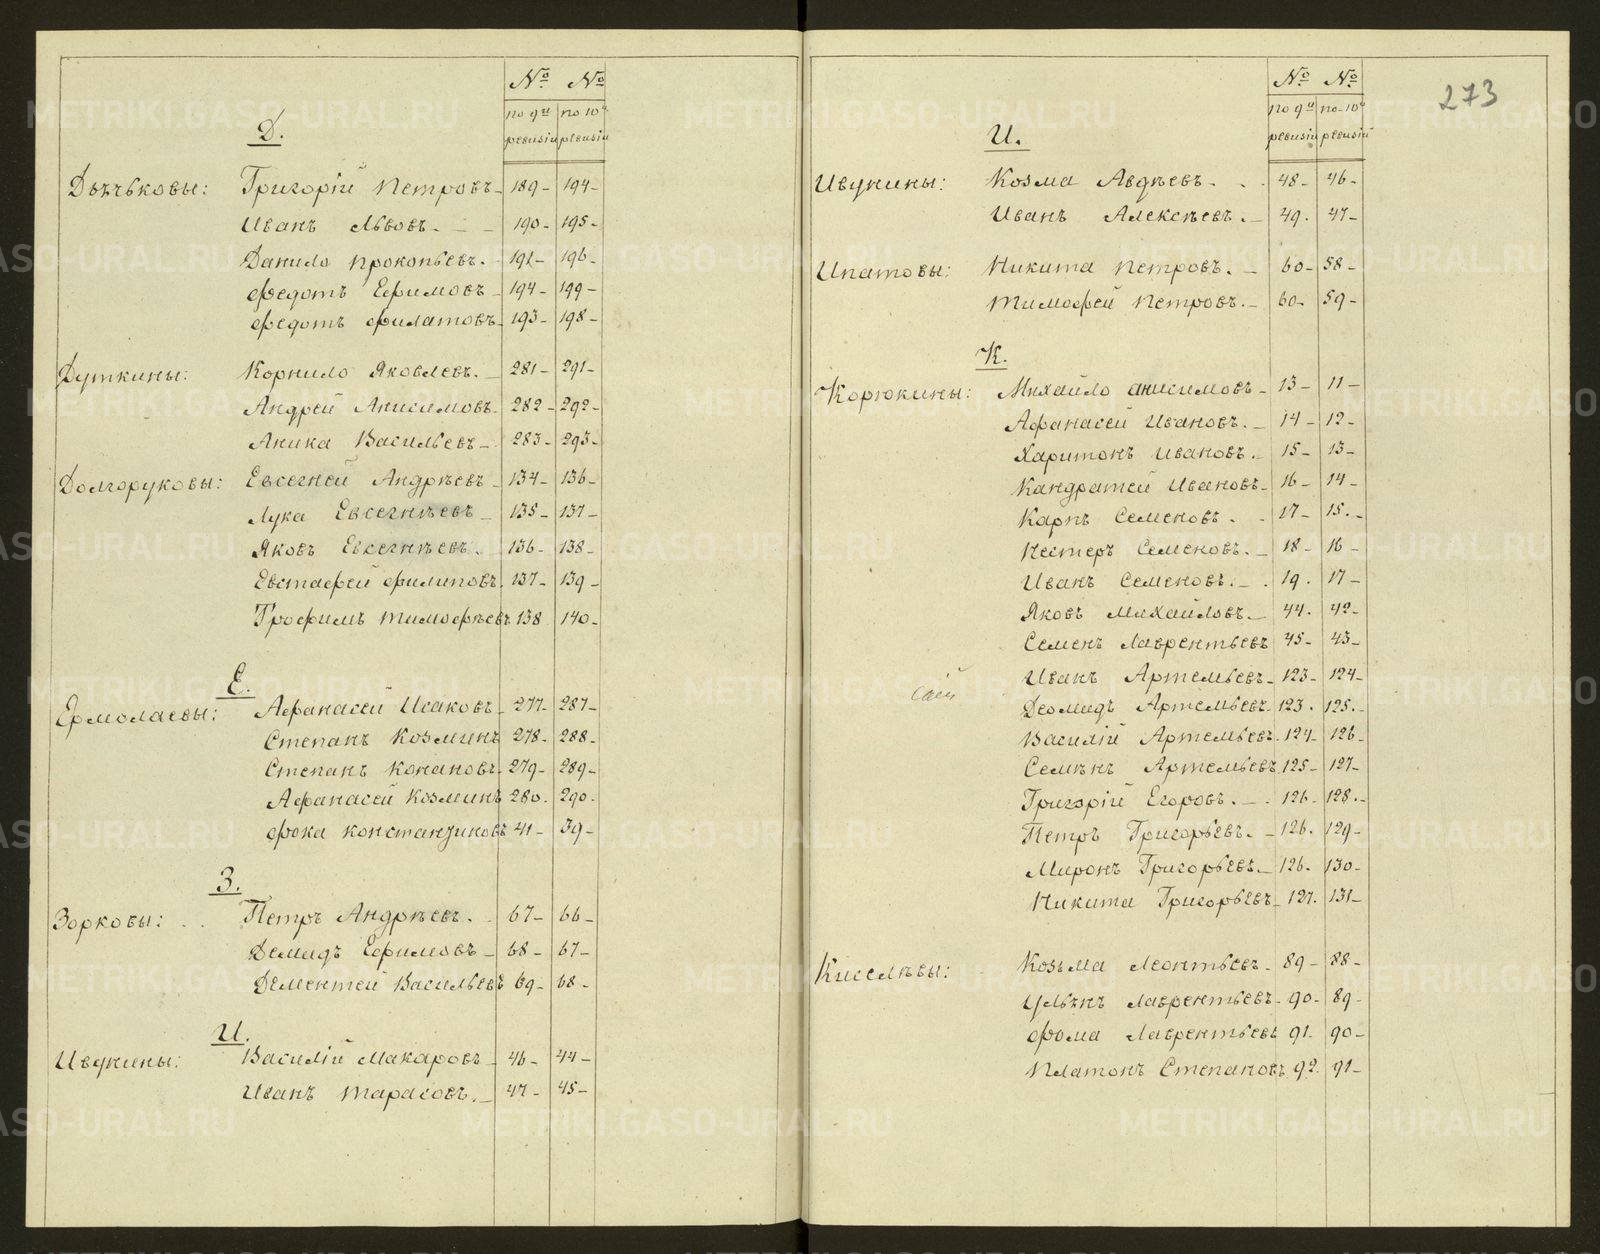 № №
по 9й ревизіи по 10й ревизіи
Д.
Дьячьковы: Григорій Петровъ 189 194
Иванъ Львовъ 190 195
Данило Прокопьевъ 191 196
Федотъ Ефимовъ 194 199
Федотъ Филатовъ 193 198
Дуткины: Корнило Яковлевъ 281 291
Андрей Анисимовъ 282 292
Аника Васильевъ 283 293
Долгоруковы: Евсегней Андрѣевъ 134 136
Лука Евсегнѣевъ 135 137
Яковъ Евсегнѣевъ 136 138
Евстафей Филиповъ 137 139
Трофимъ Тимофѣевъ 138 140
Е.
Ермолаевы: Афанасей Исаковъ 277 287
Степанъ Козминъ 278 288
Степанъ Конановъ 279 289
Афанасей Козминъ 280 290
Фока Константиновъ 41 39
З.
Зорковы: Петръ Андрѣевъ 67 66
Демидъ Ефимовъ 68 67
Дементей Васильевъ 69 68
И.
Ивукины: Василій Макаровъ 46 44
Иванъ Тарасовъ 47 45
273
№ №
по 9й ревизіи по 10й ревизіи
И.
Ивукины: Козма Авдѣевъ 48 46
Иванъ Алексѣевъ 49 47
Ипатовы: Никита Петровъ 60 58
Тимофей Петровъ 60 59
К.
Корюкины: Михайло Анисимовъ 13 11
Афанасей Ивановъ 14 12
Харитонъ Ивановъ 15 13
Кандратей Ивановъ 16 14
Карпъ Семеновъ 17 15
Нестеръ Семеновъ 18 16
Иванъ Семеновъ 19 17
Яковъ Михайловъ 44 42
Семенъ Лаврентьевъ 45 43
Иванъ Артемьевъ 123 124
Деомидъ Артемьевъ 123 125
Василій Артемьевъ 124 126
Семѣнъ Артемьевъ 125 127
Григорій Егоровъ 126 128
Петръ Григорьевъ 126 129
Миронъ Григорьевъ 126 130
Никита Григорьевъ 127 131
Киселѣвы: Козьма Леонтьевъ 89 88
Ульянъ Лаврентьевъ 90 89
Фома Лаврентьевъ 91 90
Платонъ Степановъ 92 91
METRIKI.GASO-URAL.RU